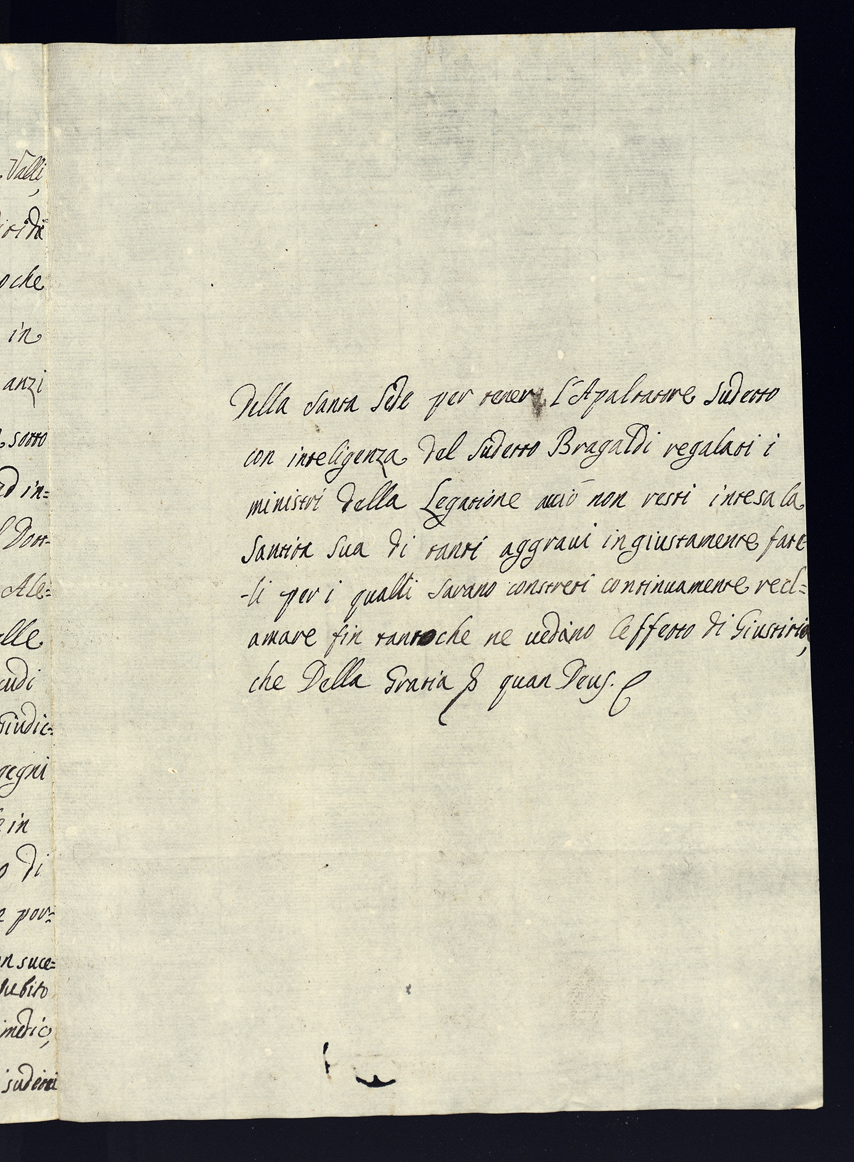 Valli,
che
in
anzi
sotto
ad in=
Dott-
Ale=
elle
cudi
Giudic=
gegni
in
di
por=
suce=
subito
sudetti
della Santa Sede per tener l'Apaltatore sudetto
con inteligenza del sudetto Bragaldi regalati i
ministri della Legatione acciò non resti intesa la
Santita Sua di tanti aggravi ingiustamente fatt
-li per i qualli sarano constreti continuamente recl=
amare fin tantoche ne vedino l'effetto di Giustitia,
che della Gratia quan Deus.